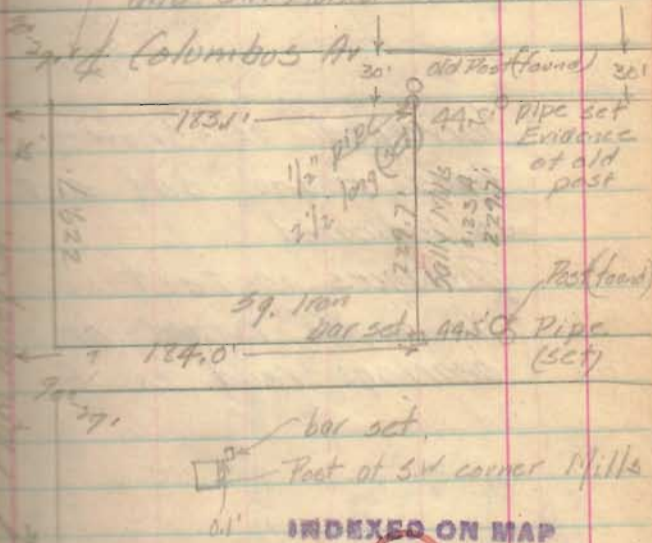 ℄ Columbus Av
30'
Old Post (found)
30'
183.1'
44.5'
pipe set
Evidence
of old
post
1/2" pipe
2 1/2' long (set)
229.7'
229.7'
Sally Mills
229.7'
Post (found)
Sq. Iron
bar set
44.5'
Pipe
(set)
184.0'
bar set.
Post at SW corner Mills
0.1'
INDEXED ON MAP